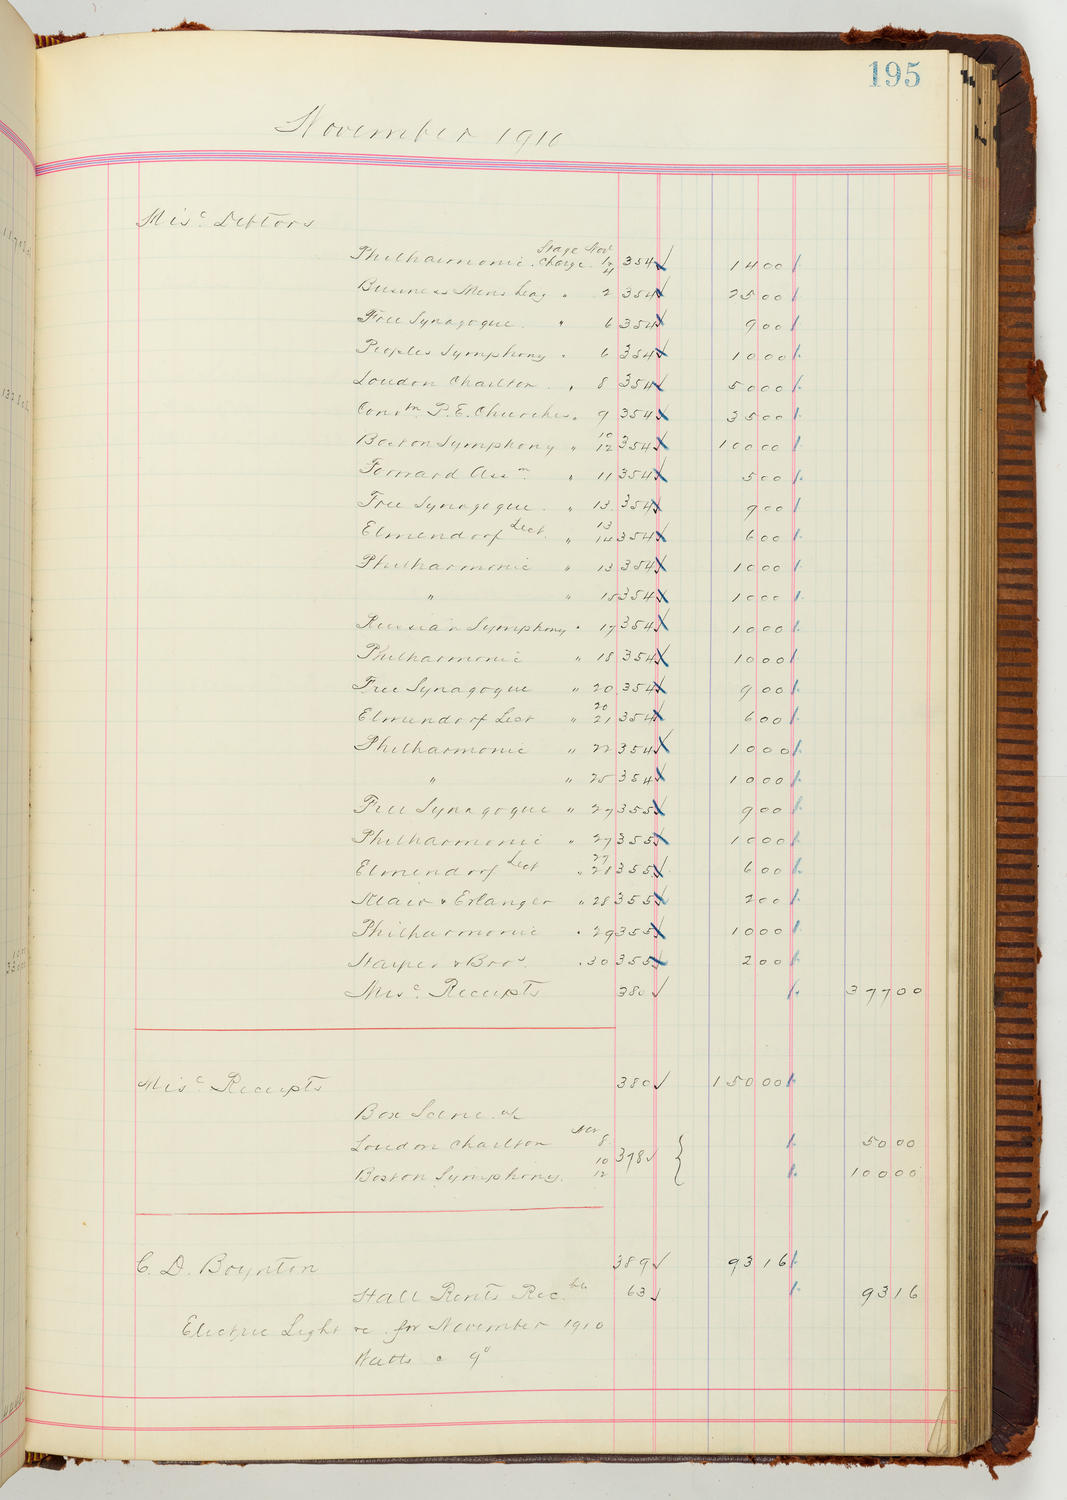 195
November 1910
Misc. Debtors
Philharmonic. Stage Charge Nov 1/4 354 ✓ 1400
Business Mens Leag " 2 354 ✓ 2500
Free Synagogue. " 6 354 ✓ 900
Peoples Symphony " 6 354 ✓ 1000
Loudon Charlton " 8 354 ✓ 5000
Conv'tn P. E. Churches " 9 354 ✓ 3500
Boston Symphony " 10/12 354 ✓ 10000
Forward Ass'n. " 11 354 ✓ 500
Free Synagogue. " 13. 354 ✓ 900
Elmendorf Lect. " 13/14 354 ✓ 600
Philharmonic " 13 354 ✓ 1000
" " 15 354 ✓ 1000
Russian Symphony " 17 354 ✓ 1000
Philharmonic " 18 354 ✓ 1000
Free Synagogue " 20 354 ✓ 900
Elmendorf Lect " 20/21 354 ✓ 600
Philharmonic " 22 354 ✓ 1000
" " 25 354 ✓ 1000
Free Synagogue " 27 355 ✓ 900
Philharmonic " 27 355 ✓ 1000
Elmendorf Lect " 27/28 355 ✓ 600
Klaw & Erlanger " 28 355 ✓ 200
Philharmonic " 29 355 ✓ 1000
Harper & Bros. " 30 355 ✓ 200
Misc. Receipts 380 ✓ 37700
Misc. Receipts 380 ✓ 15000
Box Scene
Loudon Charlton Nov 8 5000
378 ✓
Boston Symphony. 10/12 10000
C. D. Boynton 389 ✓ 9316
Hall Rents Rec.ble 63 ✓ 9316
Electric Light &c. for November 1910
Watts @ 9¢